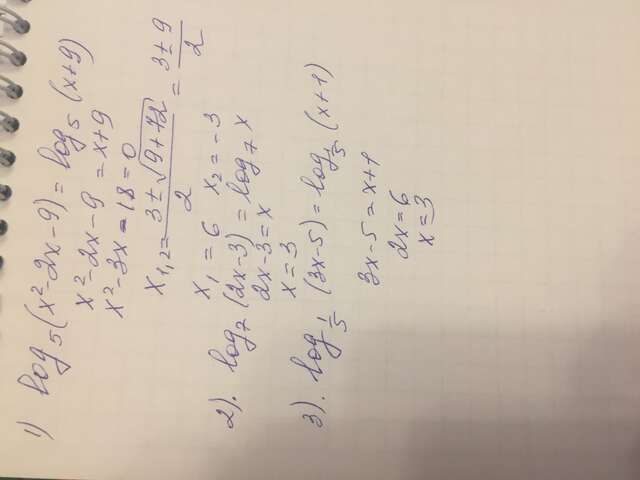 1) log₅(x²-2x-9) = log₅(x+9)
x²-2x-9 = x+9
x²-3x-18=0
x₁,₂= (3±√(9+72))/2 = (3±9)/2
x₁=6 x₂=-3
2). log₇(2x-3) = log₇ x
2x-3=x
x=3
3). log₁/₅(3x-5) = log₁/₅(x+1)
3x-5=x+1
2x=6
x=3